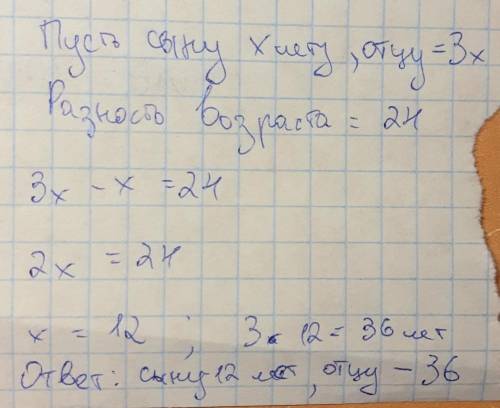 Пусть сыну x лет, отцу = 3x
Разность возраста = 24
3x - x = 24
2x = 24
x = 12 ; 3 · 12 = 36 лет
Ответ: сыну 12 лет, отцу - 36